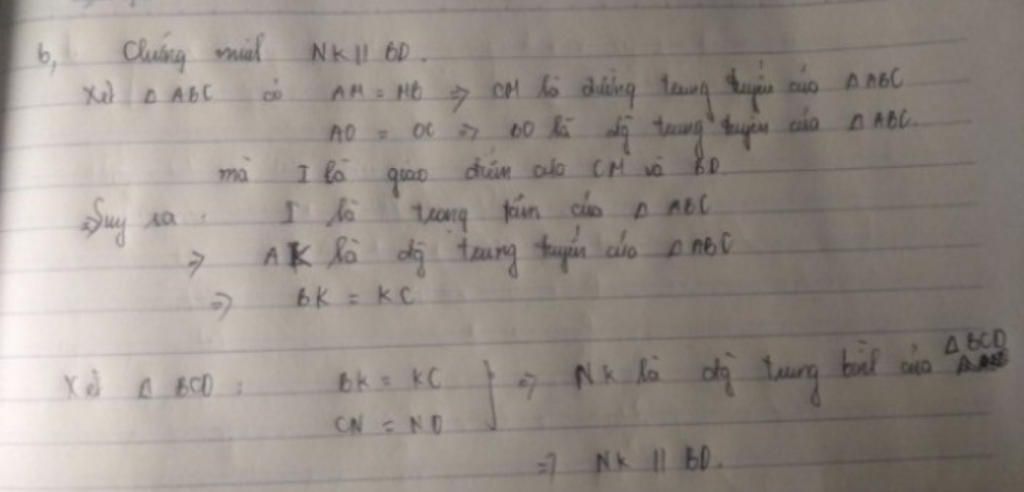 b, Chứng minh NK || BD.
Xét Δ ABC có AM = MB => CM là đường trung tuyến của Δ ABC
AO = OC => BO là đg trung tuyến của Δ ABC.
mà I là giao điểm của CM và BD
=> Suy ra: I là trọng tâm của Δ ABC
=> AK là đg trung tuyến của Δ ABC
=> BK = KC
Xét Δ BCD: BK = KC } => NK là đg trung bình của Δ BCD
CN = ND
=> NK || BD.